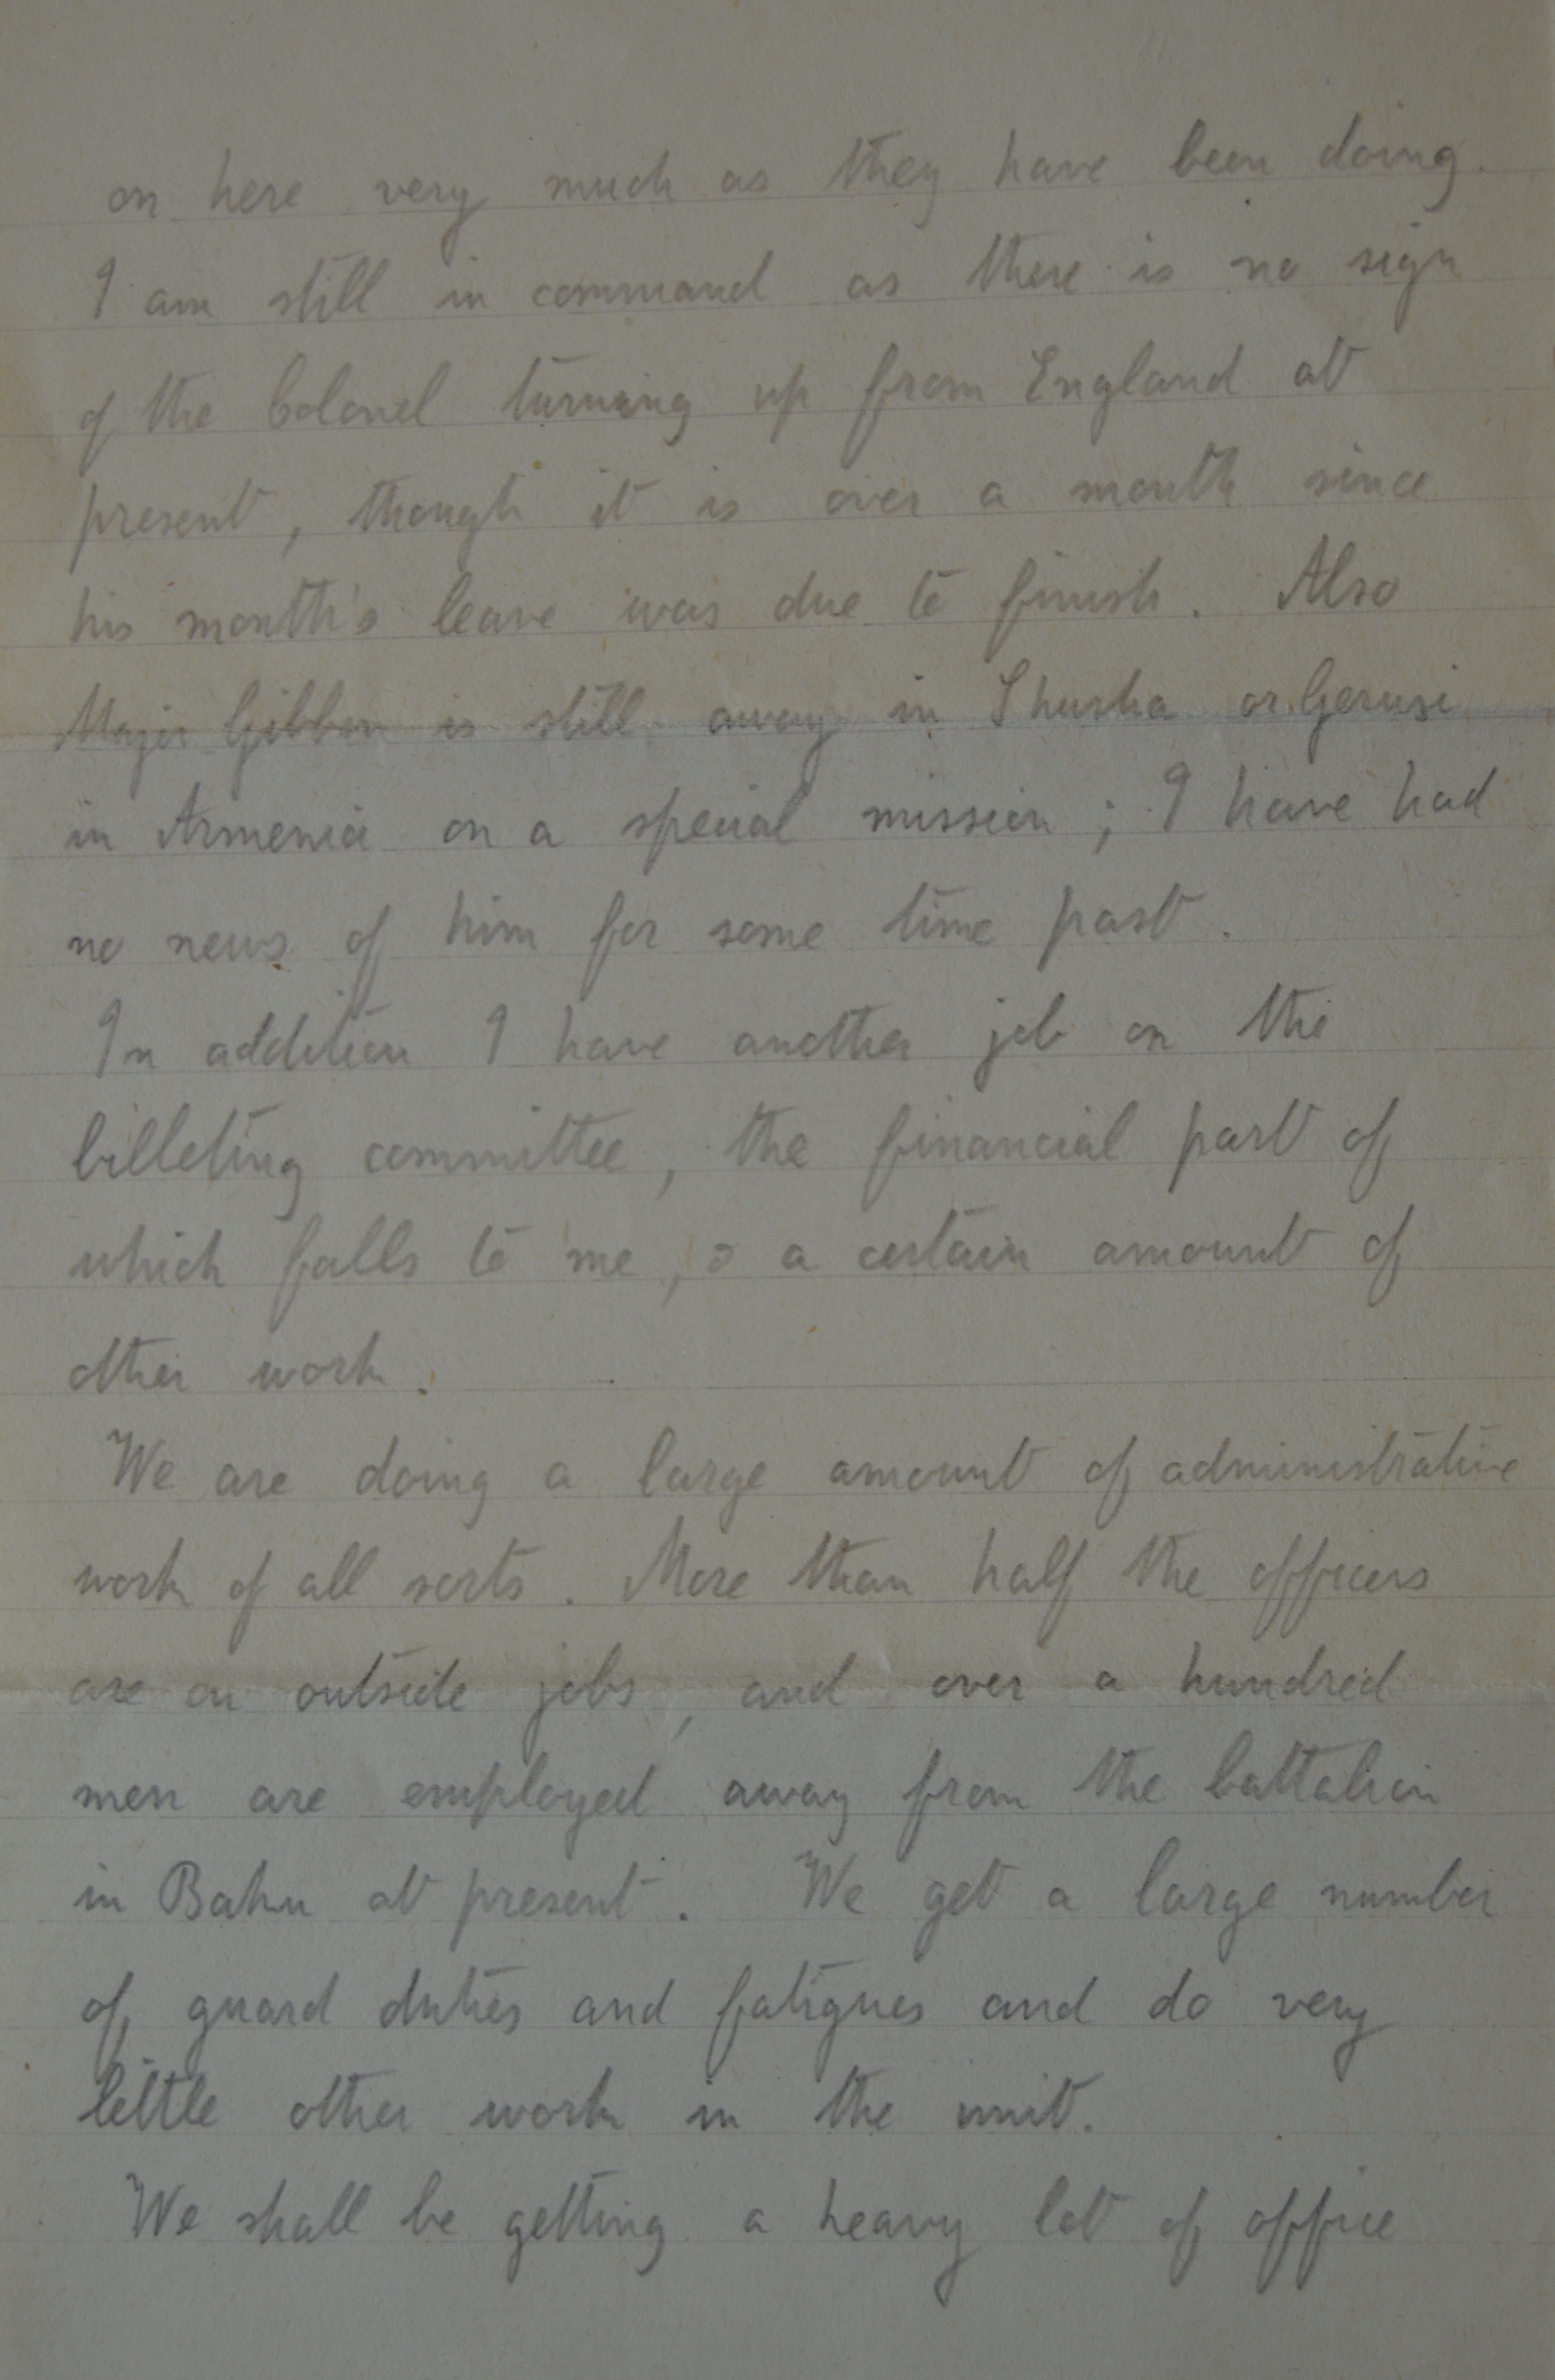 on here very much as they have been doing.
I am still in command as there is no sign
of the Colonel turning up from England at
present, though it is over a month since
his month's leave was due to finish. Also
Major Gibbon is still away in Shusha or Gerusi
in Armenia on a special mission; I have had
no news of him for some time past.
In addition I have another job on the
billeting committee, the financial part of
which falls to me, & a certain amount of
other work.
We are doing a large amount of administrative
work of all sorts. More than half the officers
are on outside jobs, and over a hundred
men are employed away from the battalion
in Baku at present. We get a large number
of guard duties and fatigues and do very
little other work in the unit.
We shall be getting a heavy lot of office